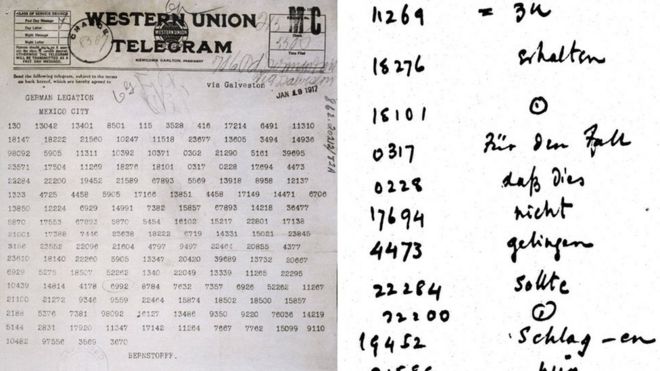 WESTERN UNION
TELEGRAM
NEWCOMB CARLTON, PRESIDENT
CLASS OF SERVICE DESIRED
Fast Day Message
Day Letter
Night Message
Night Letter
Send the following telegram, subject to the terms
on back hereof, which are hereby agreed to
via Galveston
JAN 19 1917
GERMAN LEGATION
MEXICO CITY
130 13042 13401 8501 115 3528 416 17214 6491 11310
18147 18222 21560 10247 11518 23677 13605 3494 14936
98092 5905 11311 10392 10371 0302 21290 5161 39695
23571 17504 11269 18276 18101 0317 0228 17694 4473
22284 22200 19452 21589 67893 5569 13918 8958 12137
1333 4725 4458 5905 17166 13851 4458 17149 14471 6706
13850 12224 6929 14991 7382 15857 67893 14218 36477
5870 17553 67893 5870 5454 16102 15217 22801 17138
21001 17388 7446 23638 18222 6719 14331 15021 23845
3156 23552 22096 21604 4797 9497 22464 20855 4377
23610 18140 22260 5905 13347 20420 39689 13732 20667
6929 5275 18507 52262 1340 22049 13339 11265 22295
10439 14814 4178 6992 8784 7632 7357 6926 52262 11267
21100 21272 9346 9559 22464 15874 18502 18500 15857
2188 5376 7381 98092 16127 13486 9350 9220 76036 14219
5144 2831 17920 11347 17142 11264 7667 7762 15099 9110
10482 97556 3569 3670
BERNSTORFF.
11269 = zu
18276 erhalten
18101 ⊙
0317 Für den Fall
0228 daß dies
17694 nicht
4473 gelingen
22284 sollte
22200 ⊙
19452 Schlag-en